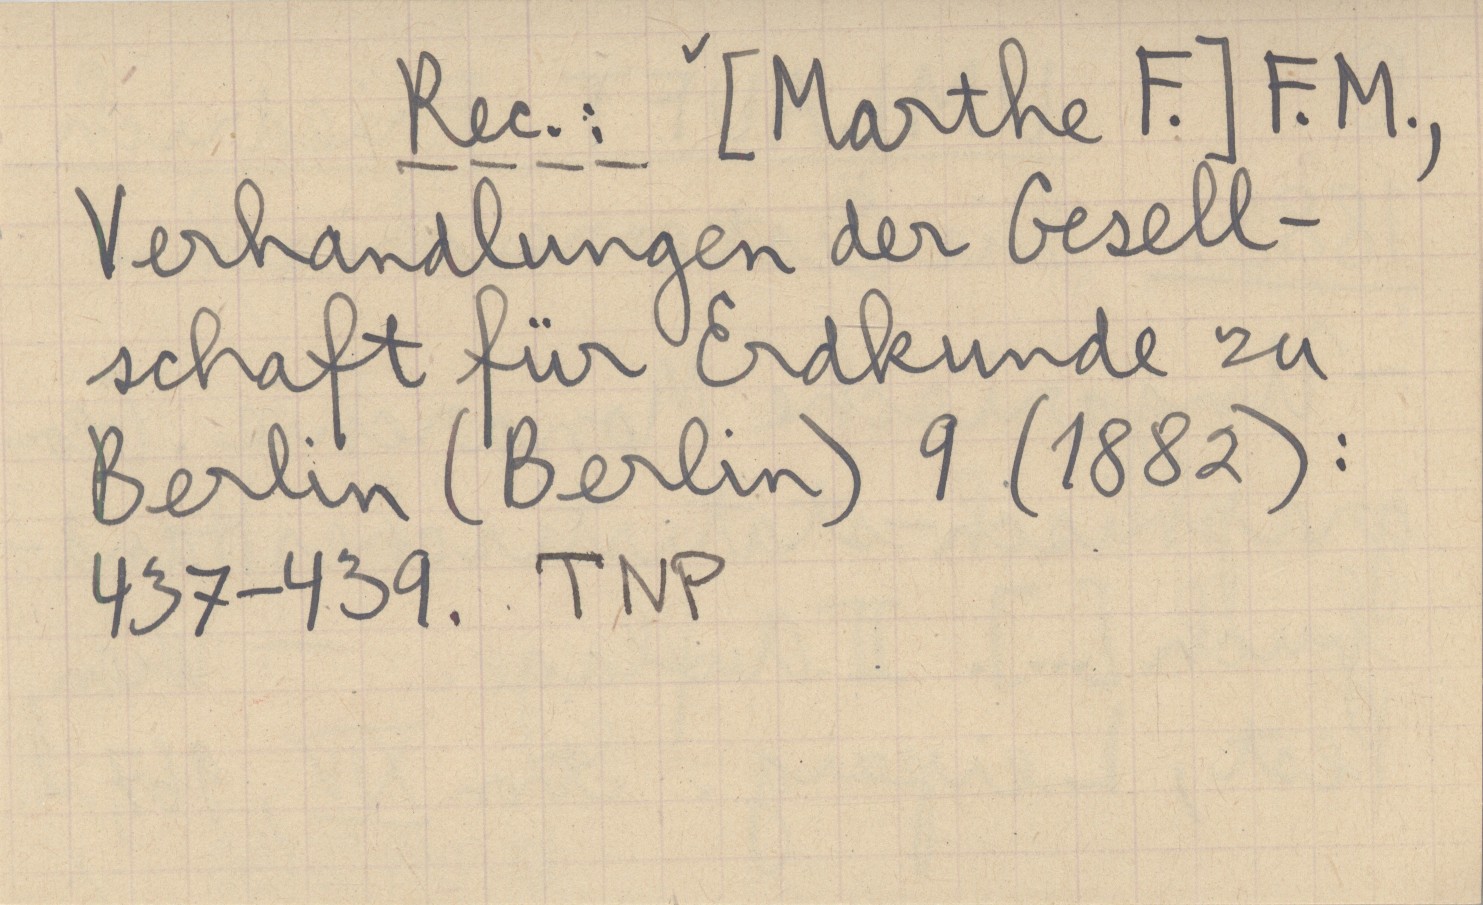 Rec.: ✓[Marthe F.] F.M.,
Verhandlungen der Gesell-
schaft für Erdkunde zu
Berlin (Berlin) 9 (1882):
437-439. TNP